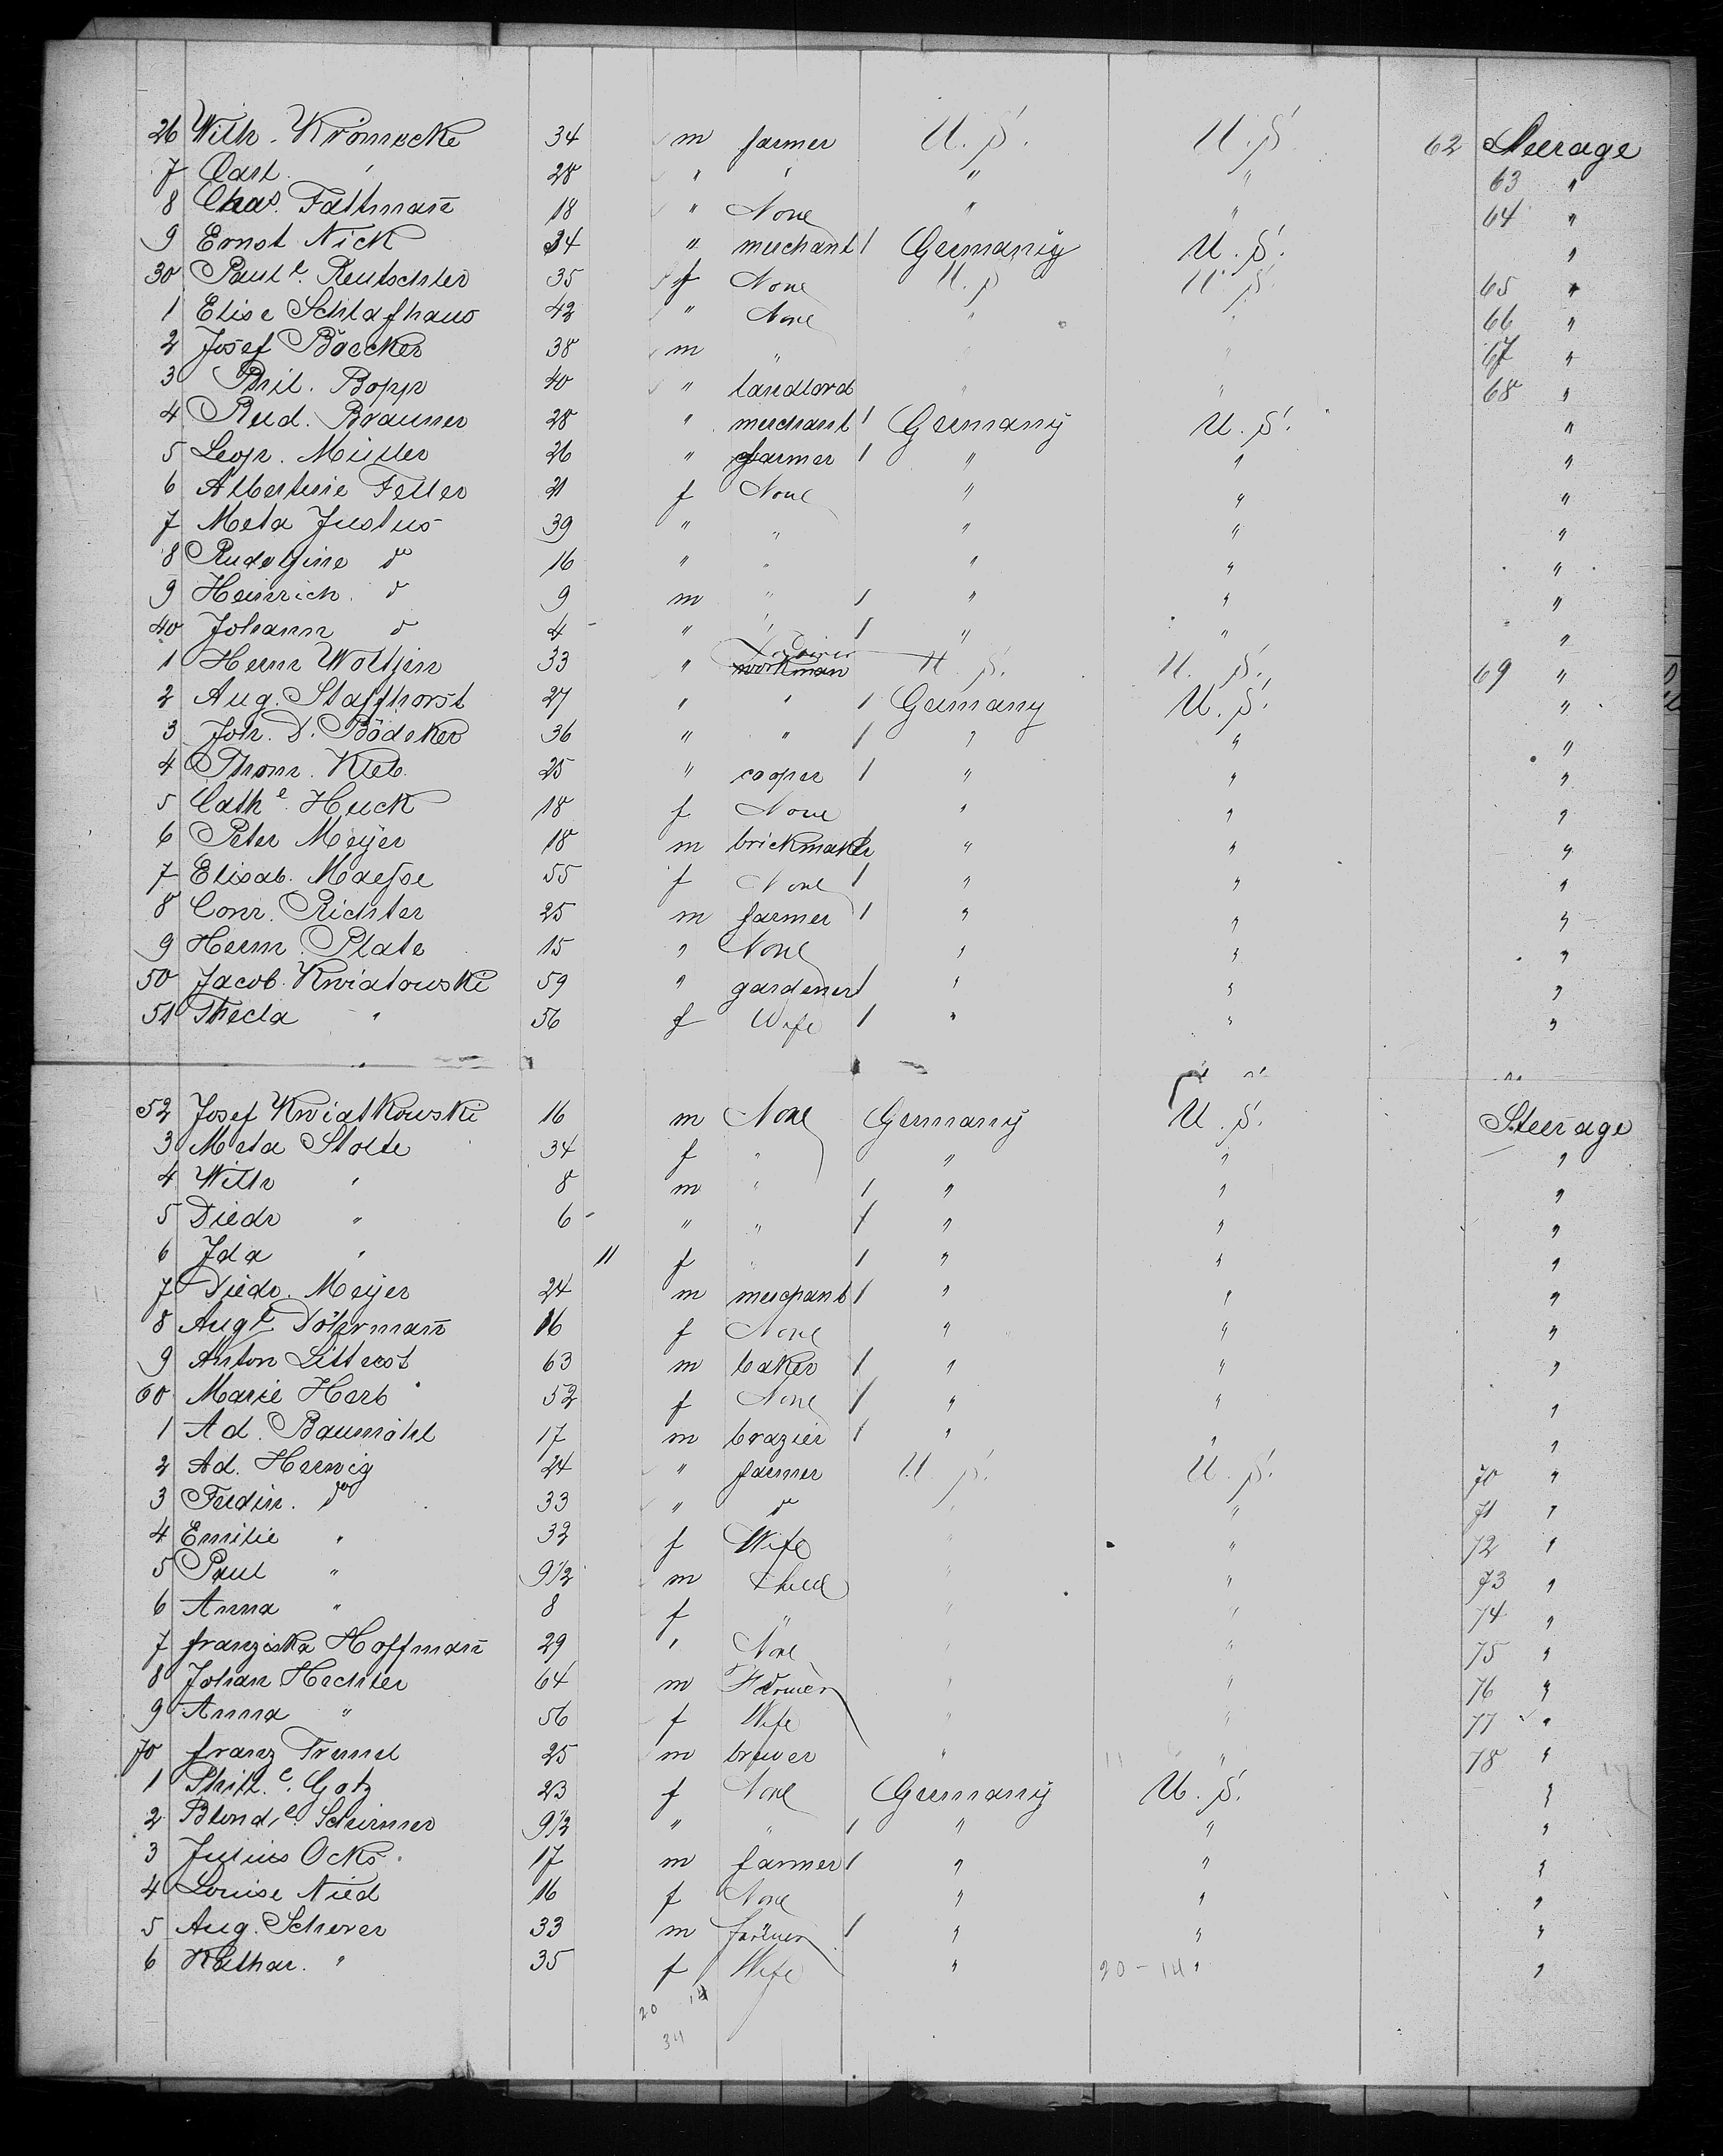 26 Wilh. Kromecke 34 m farmer U.S. U.S. 62 Steerage
7 Carl " 28 " " " " 63 "
8 Chas. Faltman̄ 18 " None " " 64 "
9 Ernst Nick 34 " merchant / Germany U.S. "
30 Paul e. Reutschler 35 f None U.S. U.S. 65 "
1 Elise Schlafhaus 42 " None " " 66 "
2 Josef Baecker 38 m " " 67 "
3 Phil. Bopp 40 " landlord " " 68 "
4 Rud. Brauner 28 " merchant / Germany U.S. "
5 Leop. Müller 26 " farmer / " " "
6 Albertine Feller 21 f None " " "
7 Meta Justus 39 " " " " "
8 Rudolfine do 16 " " " " "
9 Heinrich do 9 m " / " " "
40 Johann do 4 " " / " " "
1 Herm Woltjen 33 " workman U.S. U.S. 69 "
2 Aug. Staffhorst 27 " " / Germany U.S. "
3 Joh. D. Bödeker 36 " " / " " "
4 Thom. Kleb. 25 " cooper / " " "
5 Cath e. Huck 18 f None " " "
6 Peter Meyer 18 m brickmaker " " "
7 Elisab. Maesse 55 f None / " " "
8 Conr. Richter 25 m farmer / " " "
9 Herm. Plate 15 " None " " "
50 Jacob Kwiatowski 59 " gardener / " " "
51 Thecla " 56 f Wife / " " "
52 Josef Kwiatkowski 16 m None Germany U.S. Steerage
3 Meta Stolte 34 f " " " "
4 Wilh " 8 m " / " " "
5 Diedr " 6 " " / " " "
6 Ida " 11 f " / " " "
7 Diedr. Meyer 24 m merchant / " " "
8 Aug e. Döhrman̄ 16 f None " " "
9 Anton Litterst 63 m baker / " " "
60 Marie Herb 52 f None / " " "
1 Ad. Baumöhl 17 m brazier / " " "
2 Ad. Herwig 24 " farmer U.S. U.S. 70 "
3 Ferdin. do 33 " do " " 71 "
4 Emilie " 32 f Wife " " 72 "
5 Paul " 9 1/2 m Child " " 73 "
6 Anna " 8 f " " " 74 "
7 franziska Hoffman̄ 29 " None " " 75 "
8 Johan Hechler 64 m Farmer " " 76 "
9 Anna " 56 f Wife " " 77 "
70 franz Tremel 25 m brewer " " 78 "
1 Phil e. Gotz 23 f None Germany U.S. "
2 Blond e. Schirmer 9 1/2 " " / " " "
3 Julius Ocks 17 m farmer / " " "
4 Louise Nied 16 f None " " "
5 Aug. Scherer 33 m farmer / " " "
6 Kathar. " 35 f Wife " 20-14 " "
20 14
34